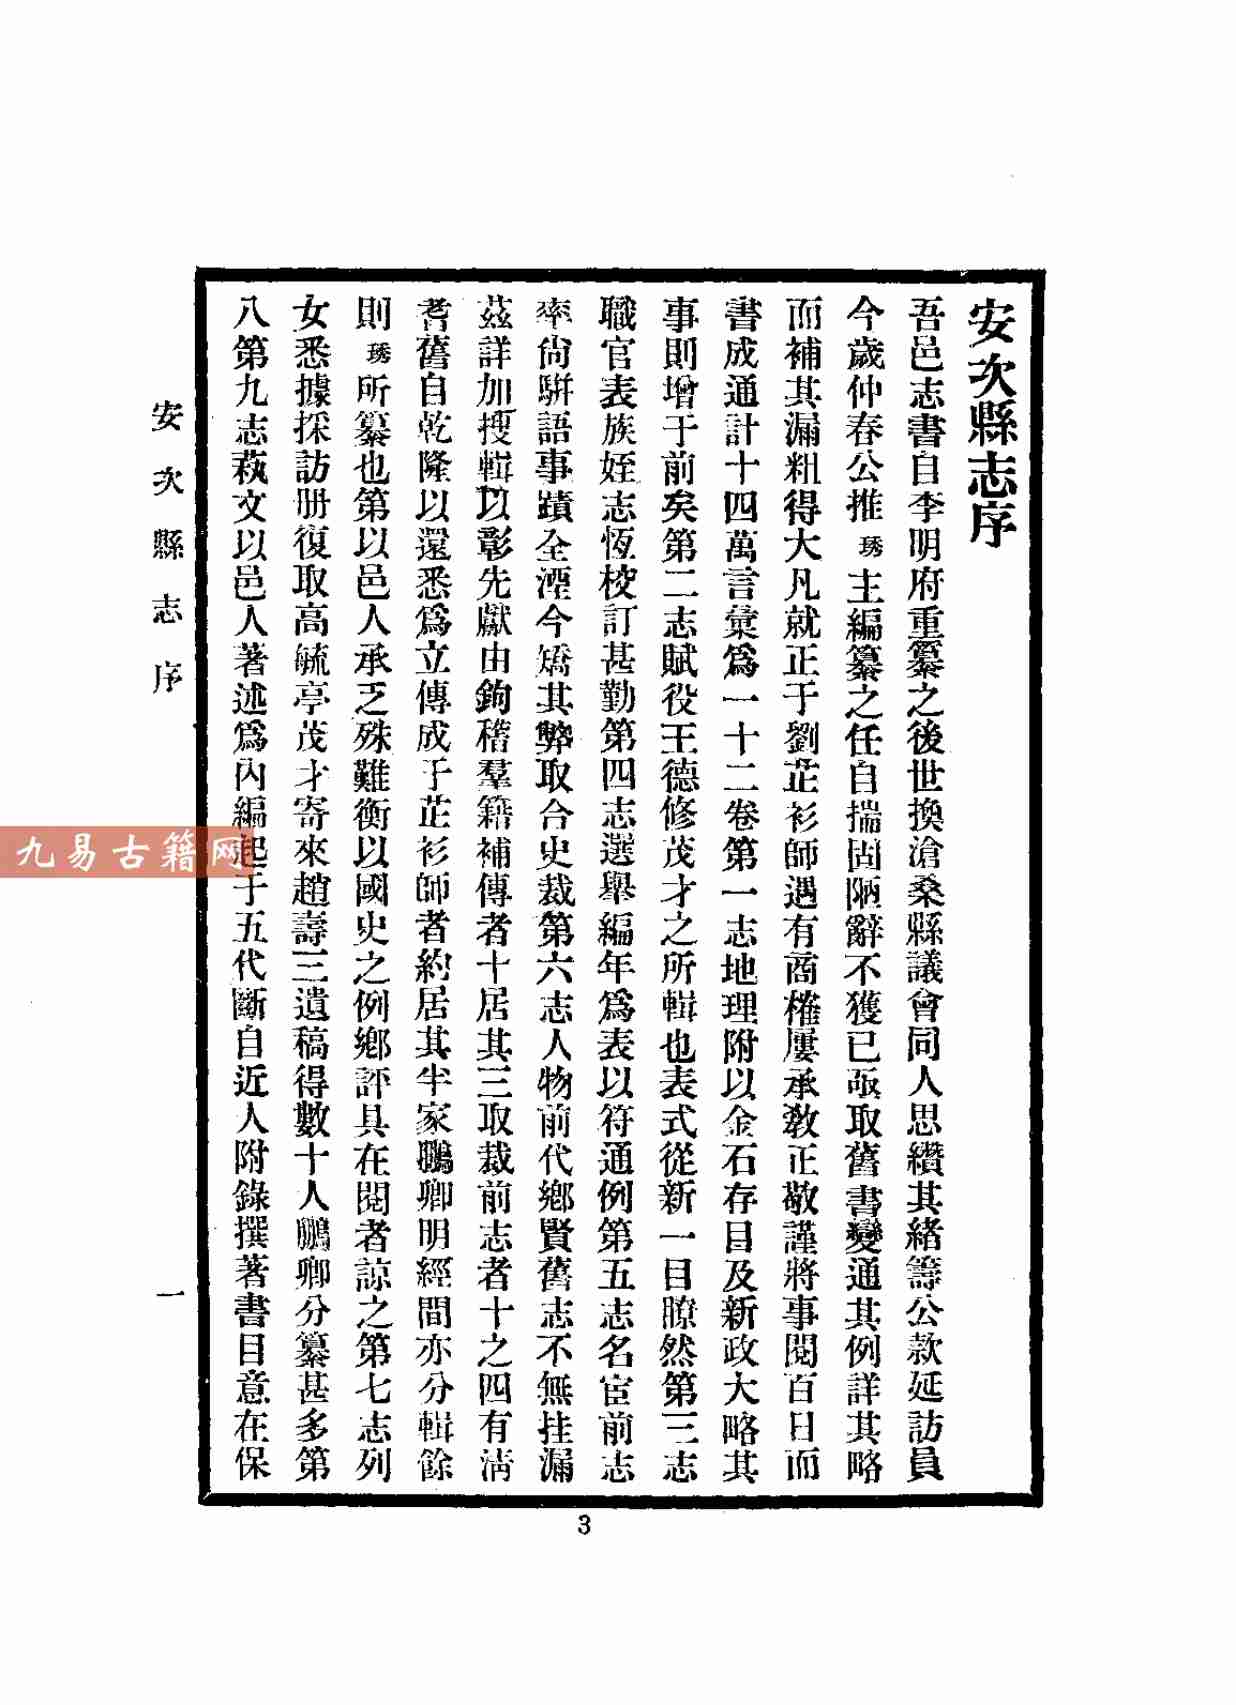 安次縣志序
吾邑志書自李明府重纂之後世換滄桑縣議會同人思纘其緒籌公款延訪員
今歲仲春公推琇主編纂之任自揣固陋辭不獲已亟取舊書變通其例詳其略
而補其漏粗得大凡就正于劉芷衫師遇有商榷屢承敎正敬謹將事閱百日而
書成通計十四萬言彙爲一十二卷第一志地理附以金石存目及新政大略其
事則增于前矣第二志賦役王德修茂才之所輯也表式從新一目瞭然第三志
職官表族姪志恆校訂甚勤第四志選舉編年爲表以符通例第五志名宦前志
率尙騈語事蹟全湮今矯其弊取合史裁第六志人物前代鄉賢舊志不無挂漏
茲詳加搜輯以彰先獻由鉤稽羣籍補傳者十居其三取裁前志者十之四有淸
耆舊自乾隆以還悉爲立傳成于芷衫師者約居其半家鵬卿明經間亦分輯餘
則琇所纂也第以邑人承乏殊難衡以國史之例鄉評具在閱者諒之第七志列
女悉據採訪册復取高毓亭茂才寄來趙壽三遺稿得數十人鵬卿分纂甚多第
八第九志蓺文以邑人著述爲內編起于五代斷自近人附錄撰著書目意在保
安次縣志序
一
3
九易古籍网